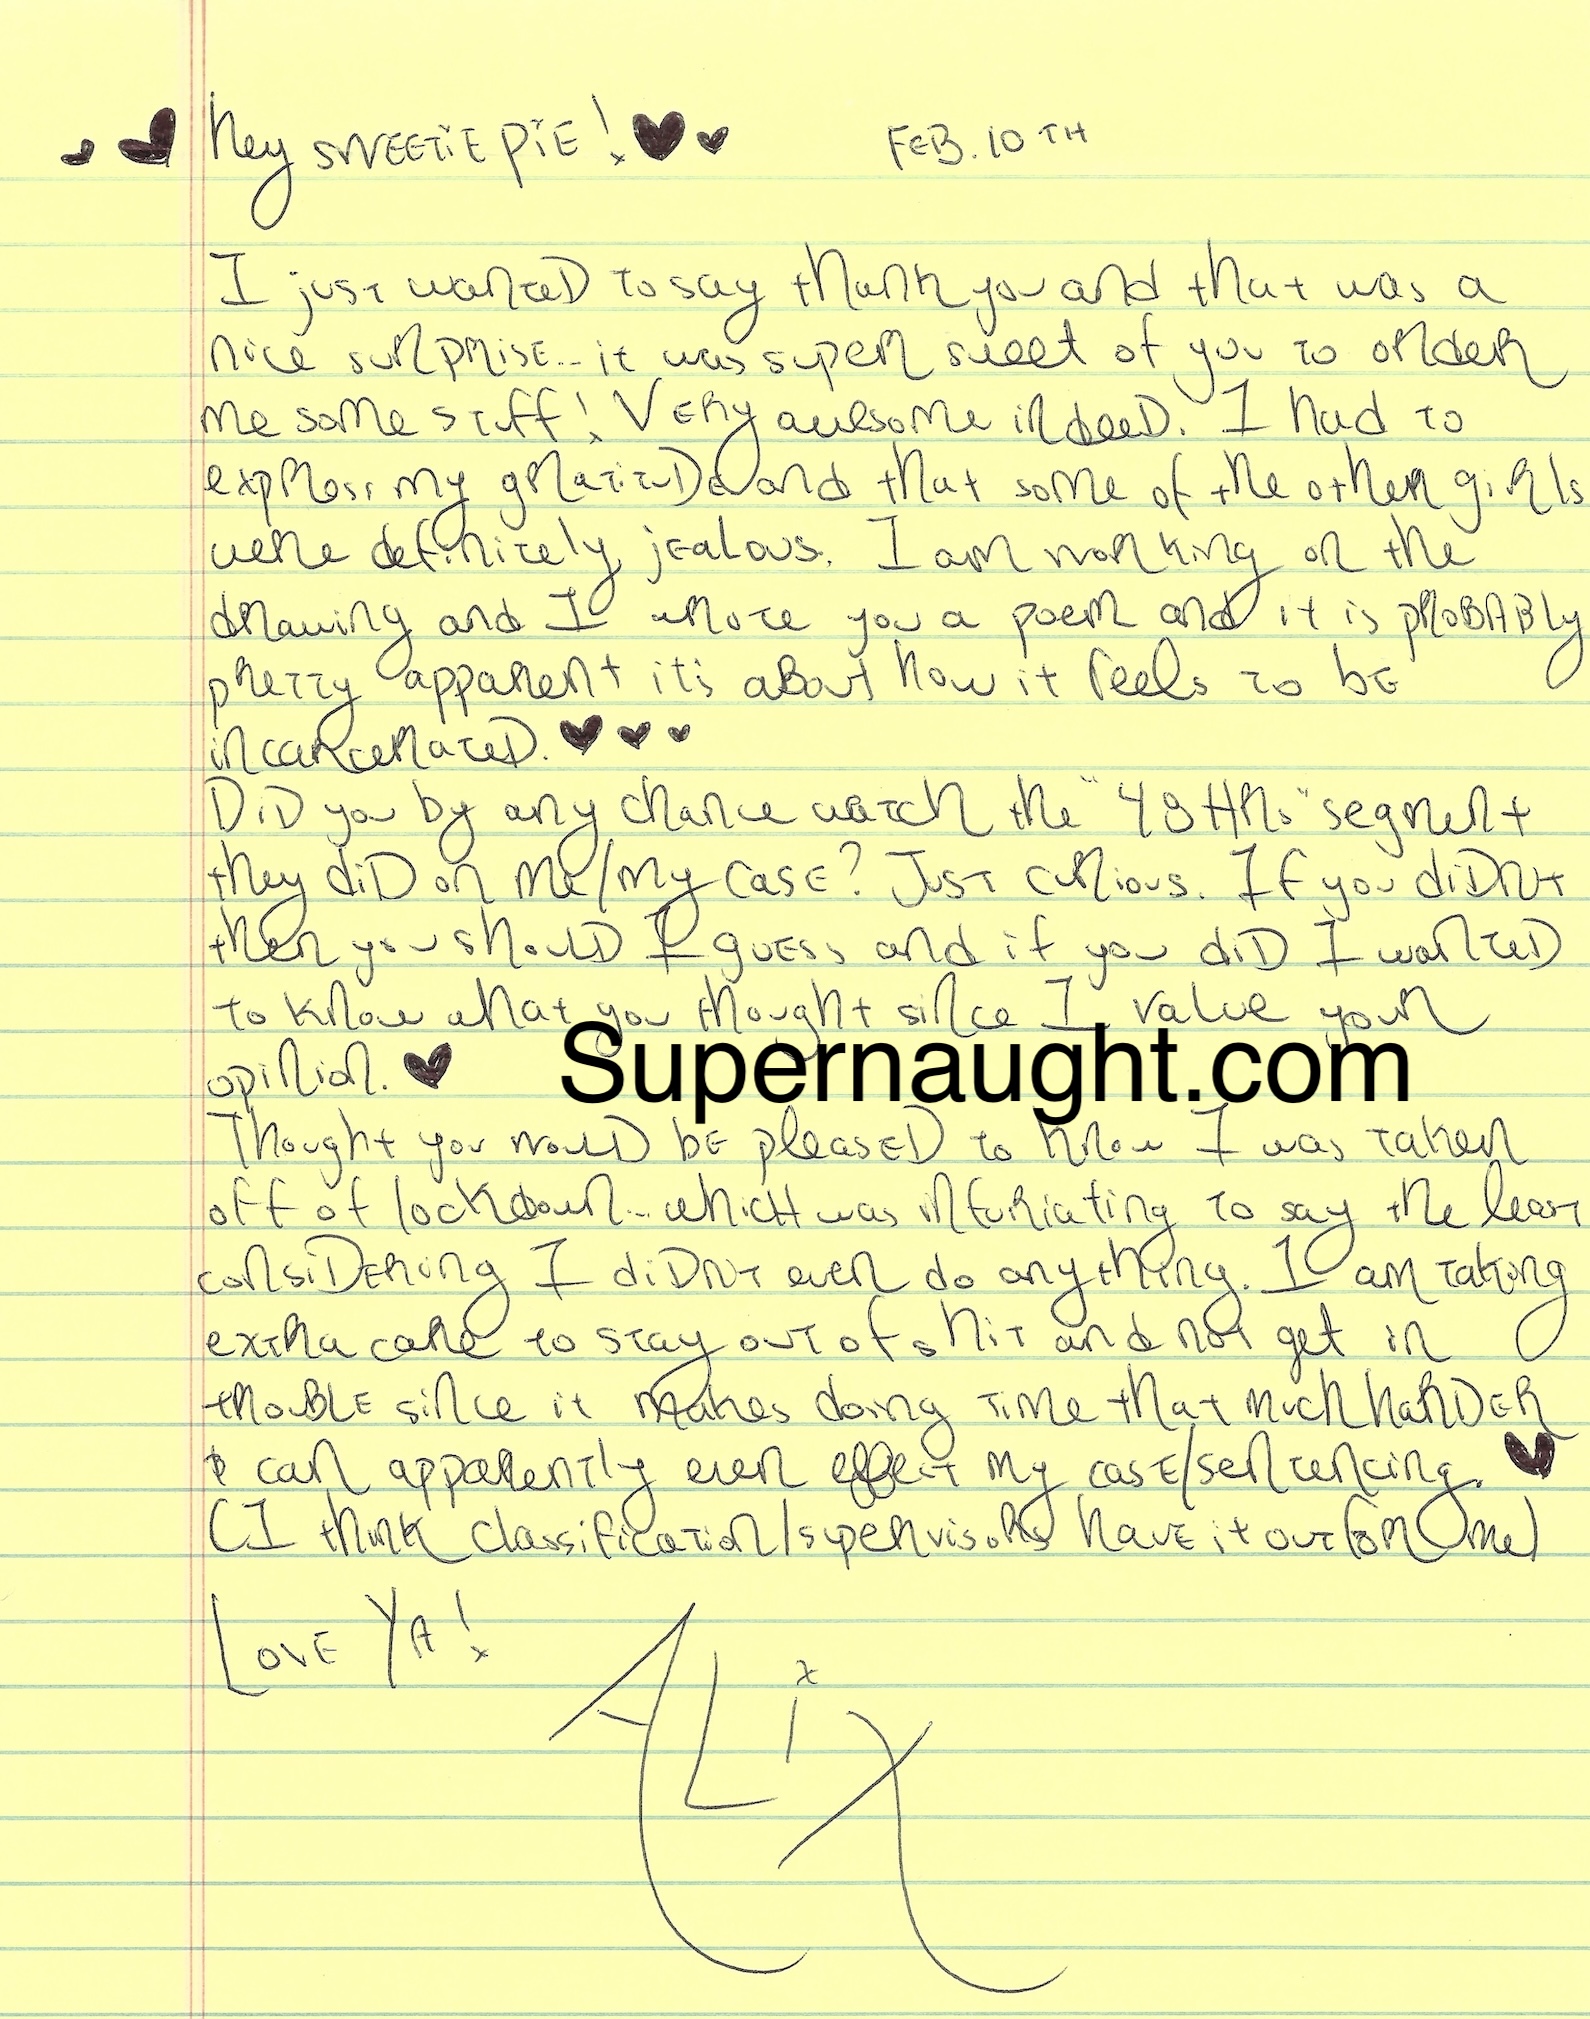 Hey SWEETiE PiE! FEB. 10TH
I just wanteD to say thank you and that was a
nice surprise... it was super sweet of you to order
me some stuff! VERy awesome indeeD. I had to
express my gratituDe and that some of the other girls
were definitely jealous. I am working on the
drawing and I wrote you a poem and it is pROBABly
pretty apparent it's aBout how it feels to bE
incarcerateD.
DiD you by any chance watch the "48 HRs" segment
they diD on me/my casE? Just curious. If you diDN't
then you shoulD I guess and if you diD I wanteD
to know what you thought since I value your
opinion.
Supernaught.com
Thought you woulD bE pleasED to know I was taken
off of lockdown... whicH was infuriating to say the least
consiDERing I diDN't even do anything. I am taking
extra care to stay out of shit and not get in
trouBLE since it makes doing time that much haRDER
& can apparently even effect my casE/sentencing.
(I think classification/supervisors havE it out for me)
LOVE YA!
ALiX